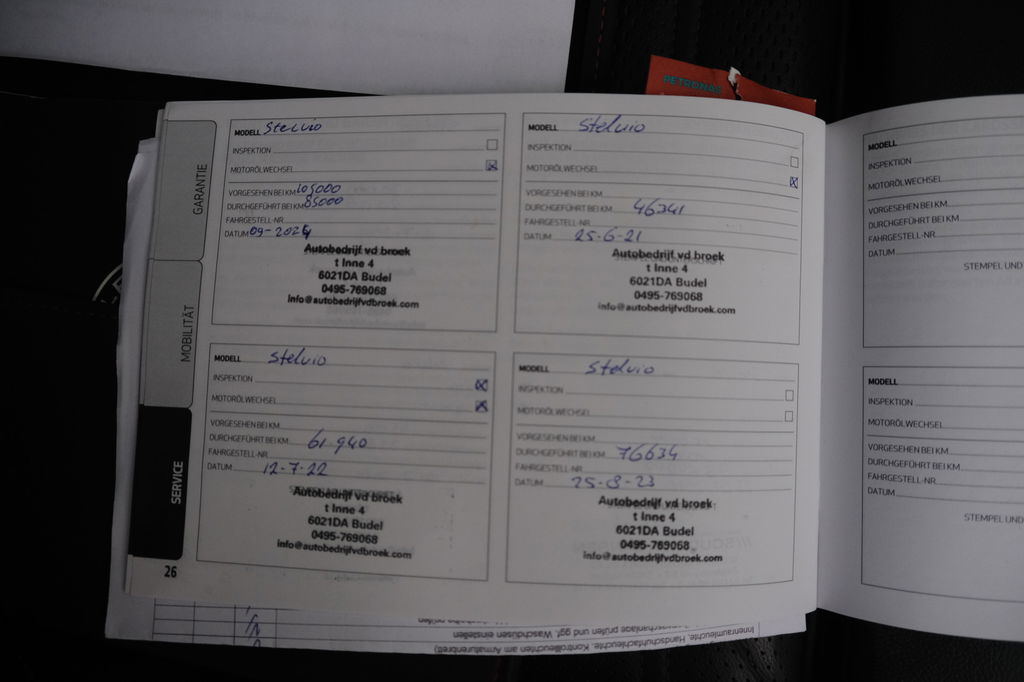 PETRONAS
GARANTIE
MOBILITÄT
SERVICE
MODELL Stelvio
INSPEKTION
MOTORÖLWECHSEL
VORGESEHEN BEI KM 105000
DURCHGEFÜHRT BEI KM 85000
FAHRGESTELL-NR.
DATUM 09-2024
Autobedrijf vd broek
t Inne 4
6021DA Budel
0495-769068
info@autobedrijfvdbroek.com
MODELL Stelvio
INSPEKTION
MOTORÖLWECHSEL
VORGESEHEN BEI KM
DURCHGEFÜHRT BEI KM 46341
FAHRGESTELL-NR.
DATUM 25-6-21
Autobedrijf vd broek
t Inne 4
6021DA Budel
0495-769068
info@autobedrijfvdbroek.com
MODELL Stelvio
INSPEKTION
MOTORÖLWECHSEL
VORGESEHEN BEI KM
DURCHGEFÜHRT BEI KM 61.940
FAHRGESTELL-NR.
DATUM 12-7-22
Autobedrijf vd broek
t Inne 4
6021DA Budel
0495-769068
info@autobedrijfvdbroek.com
MODELL Stelvio
INSPEKTION
MOTORÖLWECHSEL
VORGESEHEN BEI KM
DURCHGEFÜHRT BEI KM 76634
FAHRGESTELL-NR.
DATUM 25-8-23
Autobedrijf vd broek
t Inne 4
6021DA Budel
0495-769068
info@autobedrijfvdbroek.com
26
MODELL
INSPEKTION
MOTORÖLWECHSEL
VORGESEHEN BEI KM
DURCHGEFÜHRT BEI KM
FAHRGESTELL-NR.
DATUM
STEMPEL UND
MODELL
INSPEKTION
MOTORÖLWECHSEL
VORGESEHEN BEI KM
DURCHGEFÜHRT BEI KM
FAHRGESTELL-NR.
DATUM
STEMPEL UND
prüfen und ggf. Waschdüsen einstellen
Innenraumleuchte, Handschuhfachleuchte, Kontrollleuchten am Armaturenbrett)